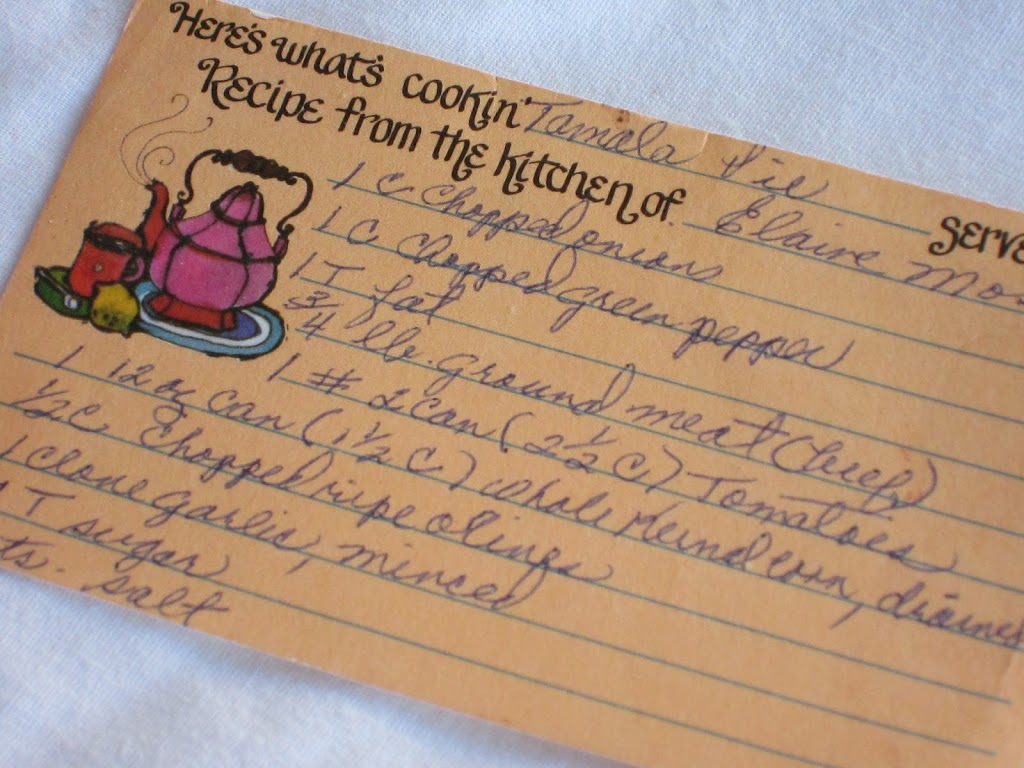 Here's what's cookin' Tamela Pie
Serve
Recipe from the kitchen of Elaine Mo
1 C chopped onions
1 C chopped green pepper
1 T fat
3/4 lb. ground meat (beef)
1 # 2 can (2 1/2 C) Tomatoes
1 12 oz can (1 1/2 C) whole Kernel corn, drained
1/2 C chopped ripe olives
1 clove garlic, minced
1 T sugar
ts. salt